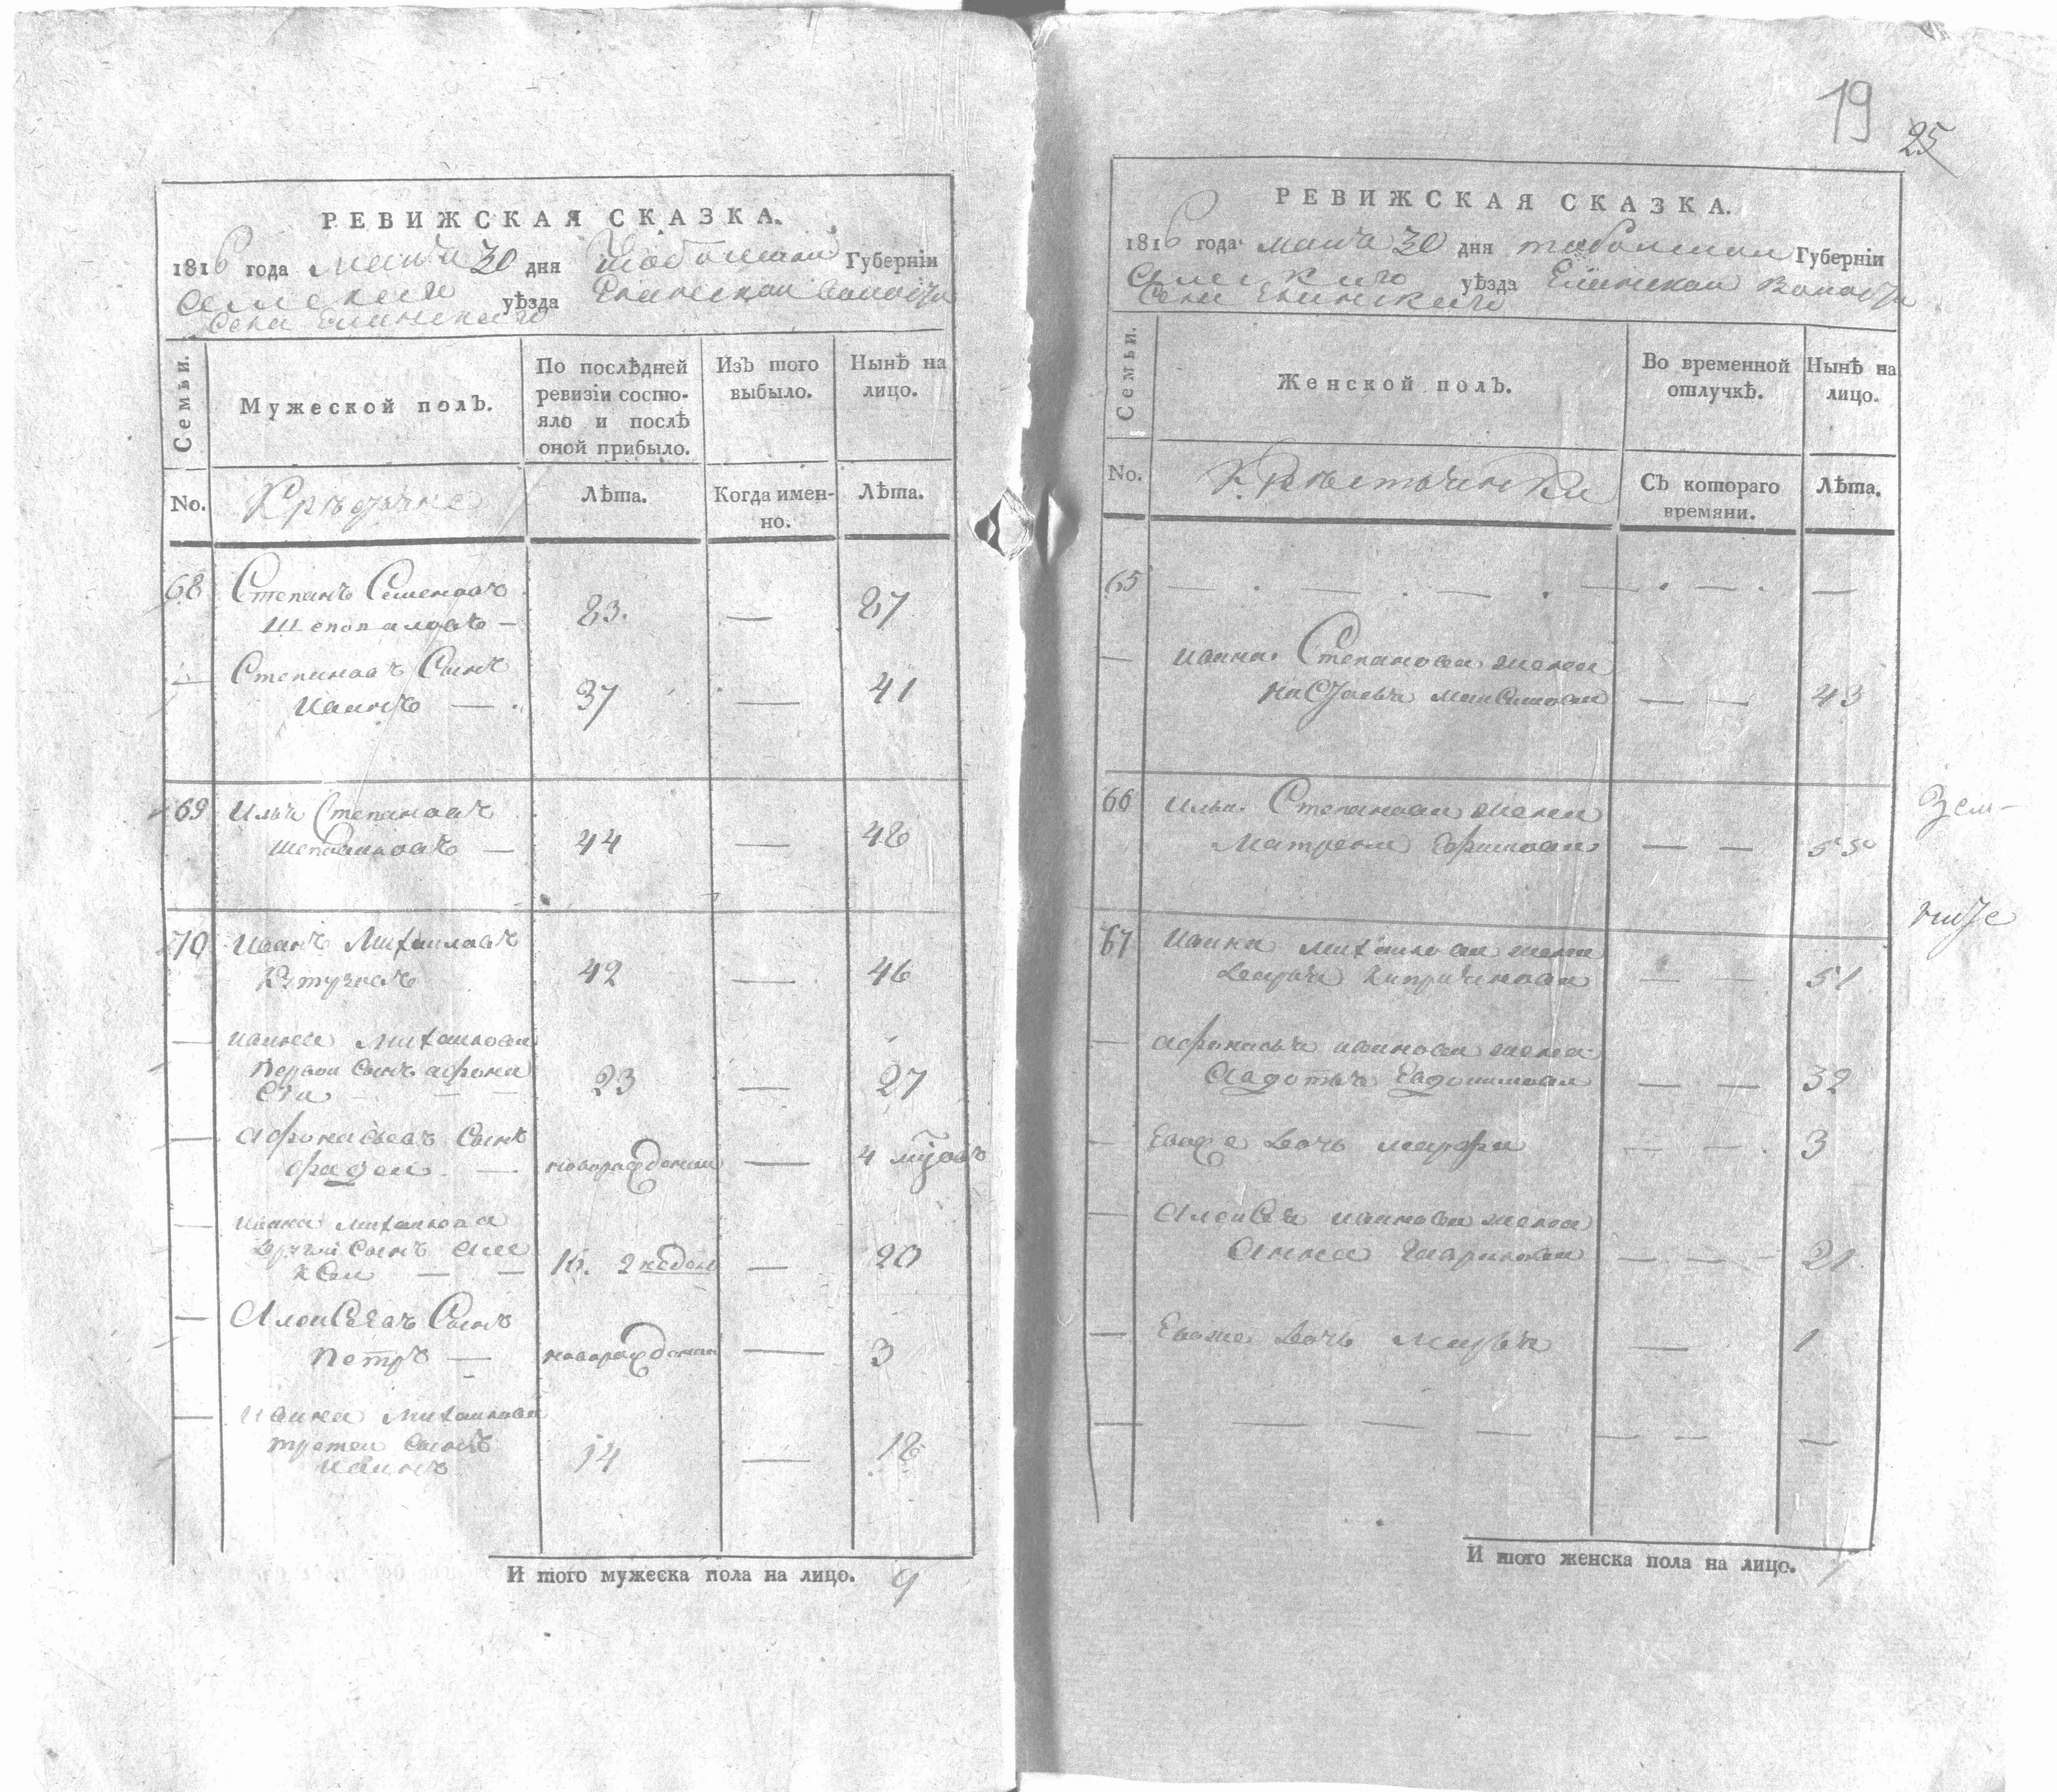 19
25
РЕВИЖСКАЯ СКАЗКА.
1816 года Маия 30 дня Тобольской Губерніи
Омского уѣзда Еланской волости
Села Еланского
Семьи.
Мужеской полъ.
По послѣдней
ревизіи состо-
яло и послѣ
оной прибыло.
Изъ того
выбыло.
Нынѣ на
лицо.
No.
Лѣта.
Когда имен-
но.
Лѣта.
68 Степанъ Семеновъ
83. — 87
— Степановъ Сынъ
Иванъ — 37 — 41
69 Илья Степановъ
— 44 — 48
70 Иванъ Михаиловъ
Кутузовъ 42 — 46
— Ивана Михаилова
Первой сынъ Афона
сеи 23 — 27
— Афонасьевъ Сынъ
Фадеи — новорожденой — 4 мцовъ
— Ивана Михаилова
Другой Сынъ Але
ксеи — 16. 2 недели — 20
— Алексеевъ Сынъ
Петръ — новорожденой — 3
— Ивана Михаилова
третеи сынъ
Иванъ 14 — 18
И того мужеска пола на лицо. 9
РЕВИЖСКАЯ СКАЗКА.
1816 года Маия 30 дня тобольской Губерніи
Омского уѣзда Еланской Волости
Села Еланского
Семьи.
Женской полъ.
Во временной
отлучкѣ.
Нынѣ на
лицо.
No.
Съ котораго
времяни.
Лѣта.
65 — — — —
— Ивана Степанова жена
Настасья Максимова — — 43
66 Ильи Степанова жена
Матрена Ефимова — — 55
67 Ивана Михаилова жена
Дарья Киприянова — — 51
— Афонасья иванова жена
Авдотья Евдокимова — — 32
— Евоже Дочь марфа — — 3
— Алексея иванова жена
Анна — — 21
— Евоже Дочь Марья — 1
— — — — — — —
И того женска пола на лицо. 7
Зем-